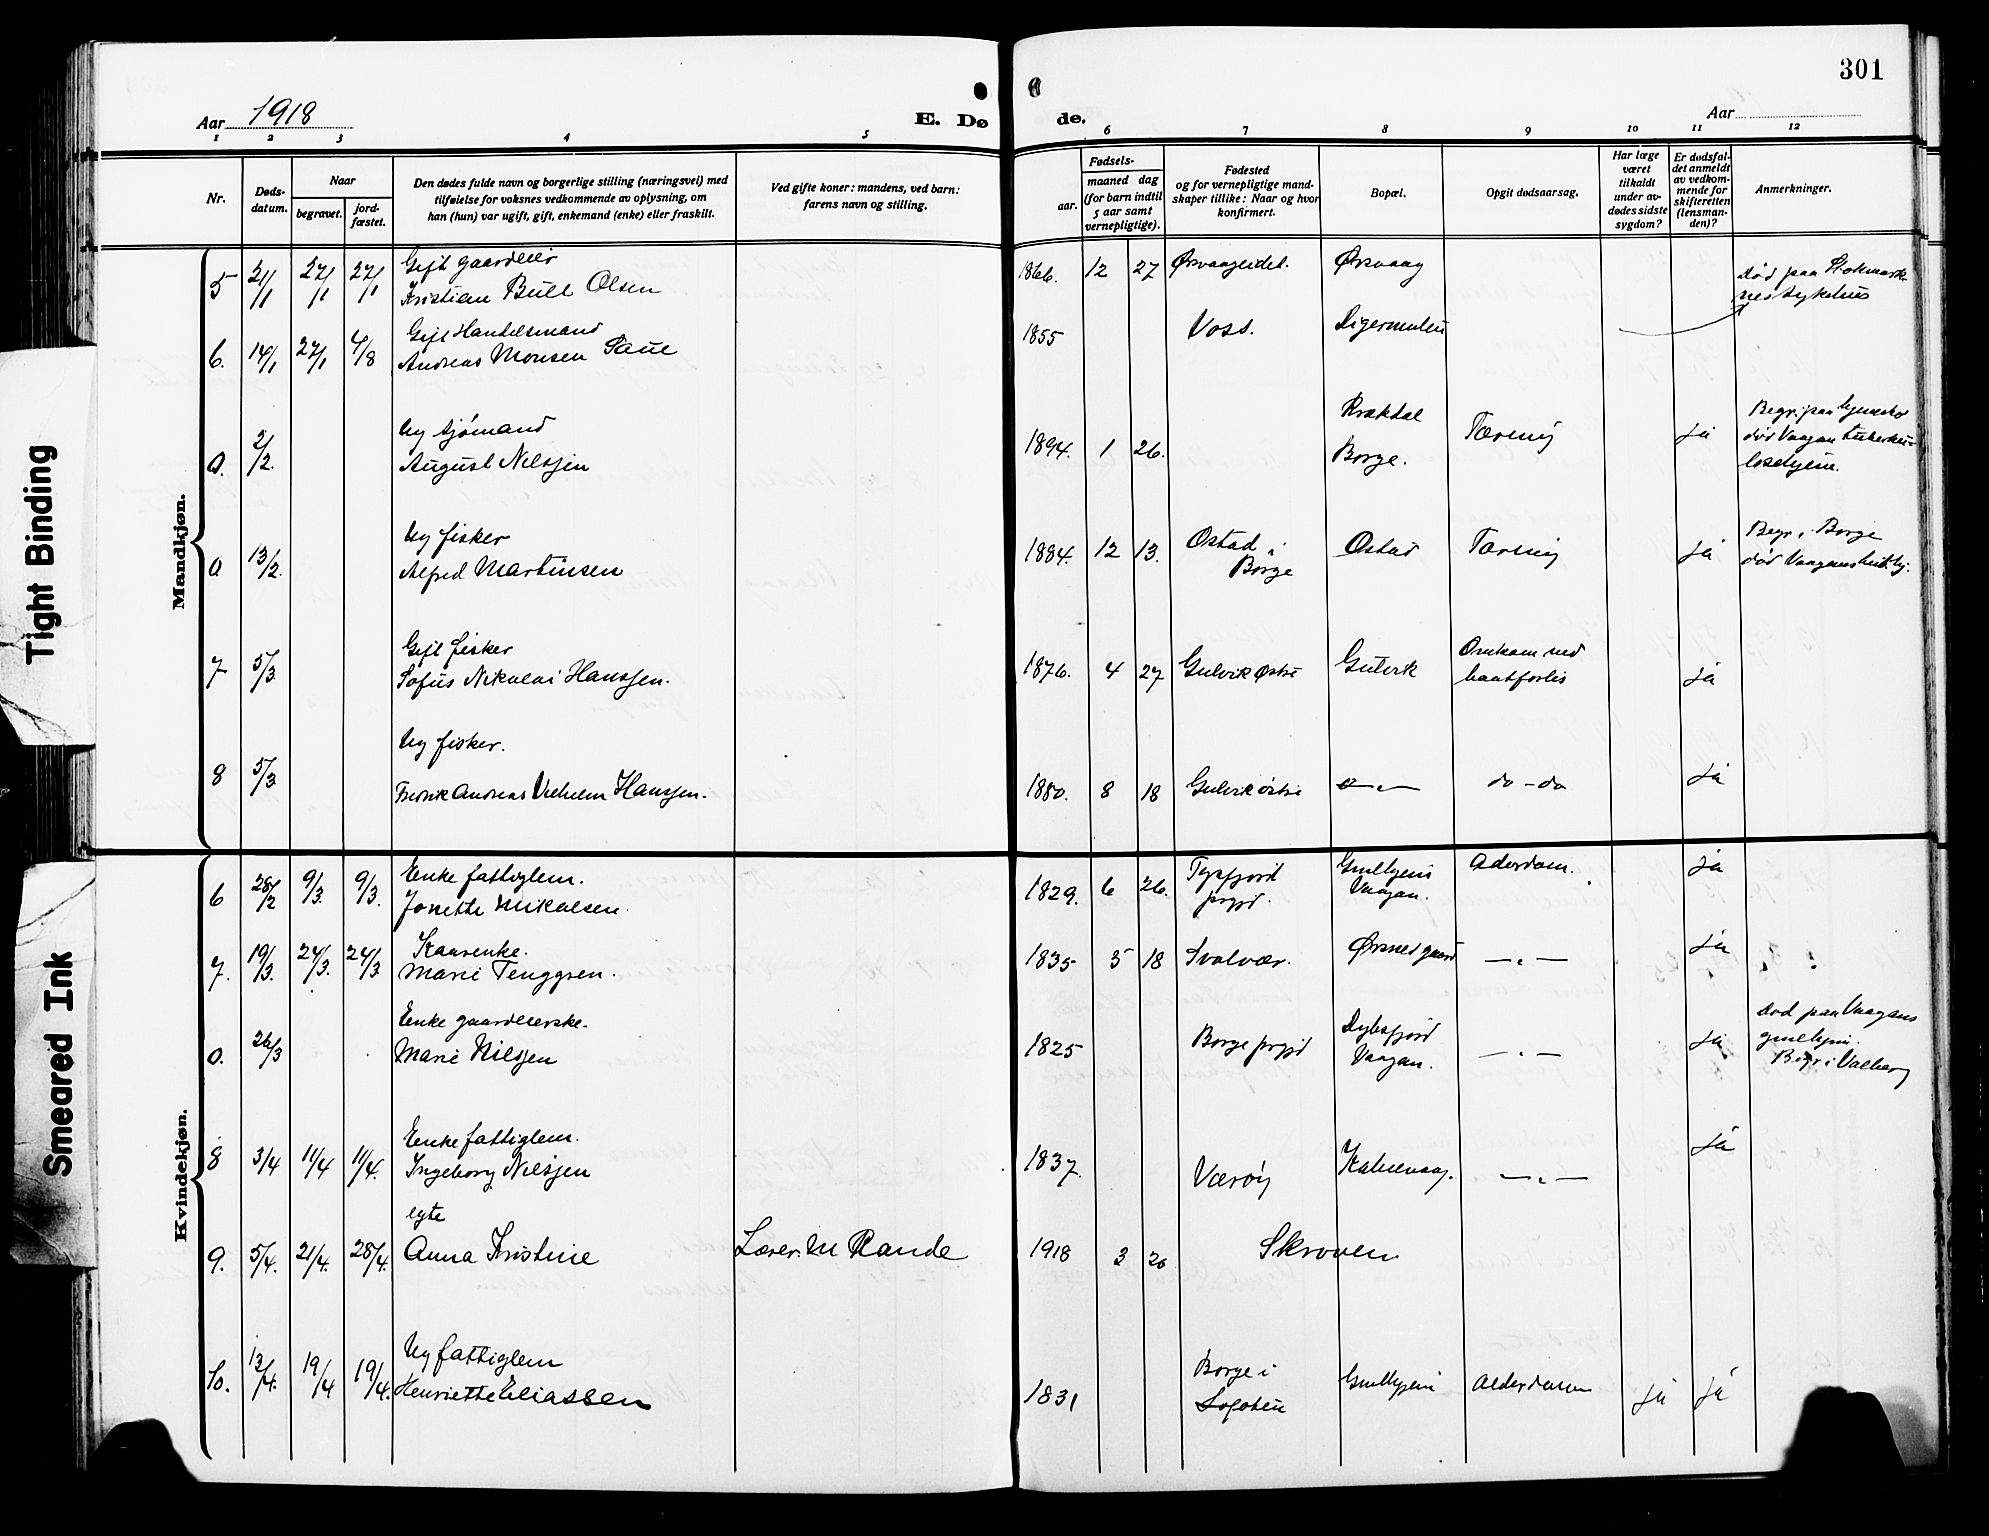 Tight Binding
Smeared Ink
301
Aar 1918
E. Dø de.
Aar
1 2 3 4 5 6 7 8 9 10 11 12
Nr.
Døds-
datum.
Naar
begravet.
jord-
fæstet.
Den dødes fulde navn og borgerlige stilling (næringsvei) med
tilføielse for voksnes vedkommende av oplysning, om
han (hun) var ugift, gift, enkemand (enke) eller fraskilt.
Ved gifte koner: mandens, ved barn:
farens navn og stilling.
Fødsels-
aar.
maaned dag
(for barn indtil
5 aar samt
vernepligtige).
Fødested
og for vernepligtige mand-
skaper tillike: Naar og hvor
konfirmert.
Bopæl.
Opgit dødsaarsag.
Har læge
været
tilkaldt
under av-
dødes sidste
sygdom?
Er dødsfal-
det anmeldt
av vedkom-
mende for
skifteretten
(lensman-
den)?
Anmerkninger.
Mandkjøn.
Gift gaardeier
5 21/1 27/1 27/1 Kristian Bull Olsen 1866. 12 27 Ørsvaageidet. Ørsvaag
død paa Stokmark-
nes sykehus
Gift Handelsmand
6. 14/1 27/1 4/8 Andreas Monsen Saue 1855 Voss. Digermulen
Ug sjømand
0. 2/2. August Nilssen 1894. 1 26.
Borge. Tæring ja
Begr. paa
død Vaagan tuberku-
losehjem.
Ug fisker
0 13/2. Alfred Martinsen 1884. 12 13. Ostad i
Borge Ostad Tæring ja
Begr. i Borge
død Vaagans
Gift fisker
7 5/3 Sofus Nikolai Hanssen. 1876. 4 27 Gulvik Østre Gulvik
Omkom ved
baatforlis ja
Ug fisker.
8 5/3 Fredrik Andreas Vilhelm Hanssen. 1880. 8 18 Gulvik østre — „ — do – do ja
Kvindekjøn.
Enke fattiglem.
6 28/2 9/3. 9/3. Jonette Mikalsen. 1829. 6 26. Tysfjord
prgjd.
Gmlhjem
Vaagan. Alderdom. ja
Kaarenke.
7. 19/3. 24/3. 24/3 Marie Tenggren. 1835 5 18 Svolvær. Ørsnes gaard — „ — ja
Enke gaardeierske.
0. 26/3 Marie Nilssen 1825 Borge prgjd
Dybfjord
Vaagan. — „ — ja
Død paa Vaagans
gmlhjem.
Begr. i Valberg
Enke fattiglem.
8 3/4 11/4 11/4. Ingeborg Nilssen 1837. Værøy Kabelvaag. — „ — ja
egte
9. 5/4. 21/4. 28/4. Anna Kristine Lærer. M Rande 1918 3 20 Skroven
Ug fattiglem
10. 13/4. 19/4 19/4. Henriette Eliassen 1831
Borge i
Lofoten Gmlhjem Alderdom ja ja